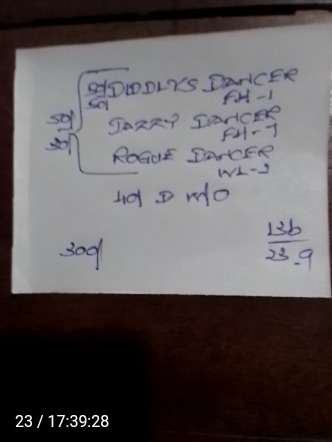 DIDDLYS DANCER
FH-1
JAZZY DANCER
FH-1
ROGUE DANCER
WL-2
40/ D W/O
300/
136
23.9
23 / 17:39:28